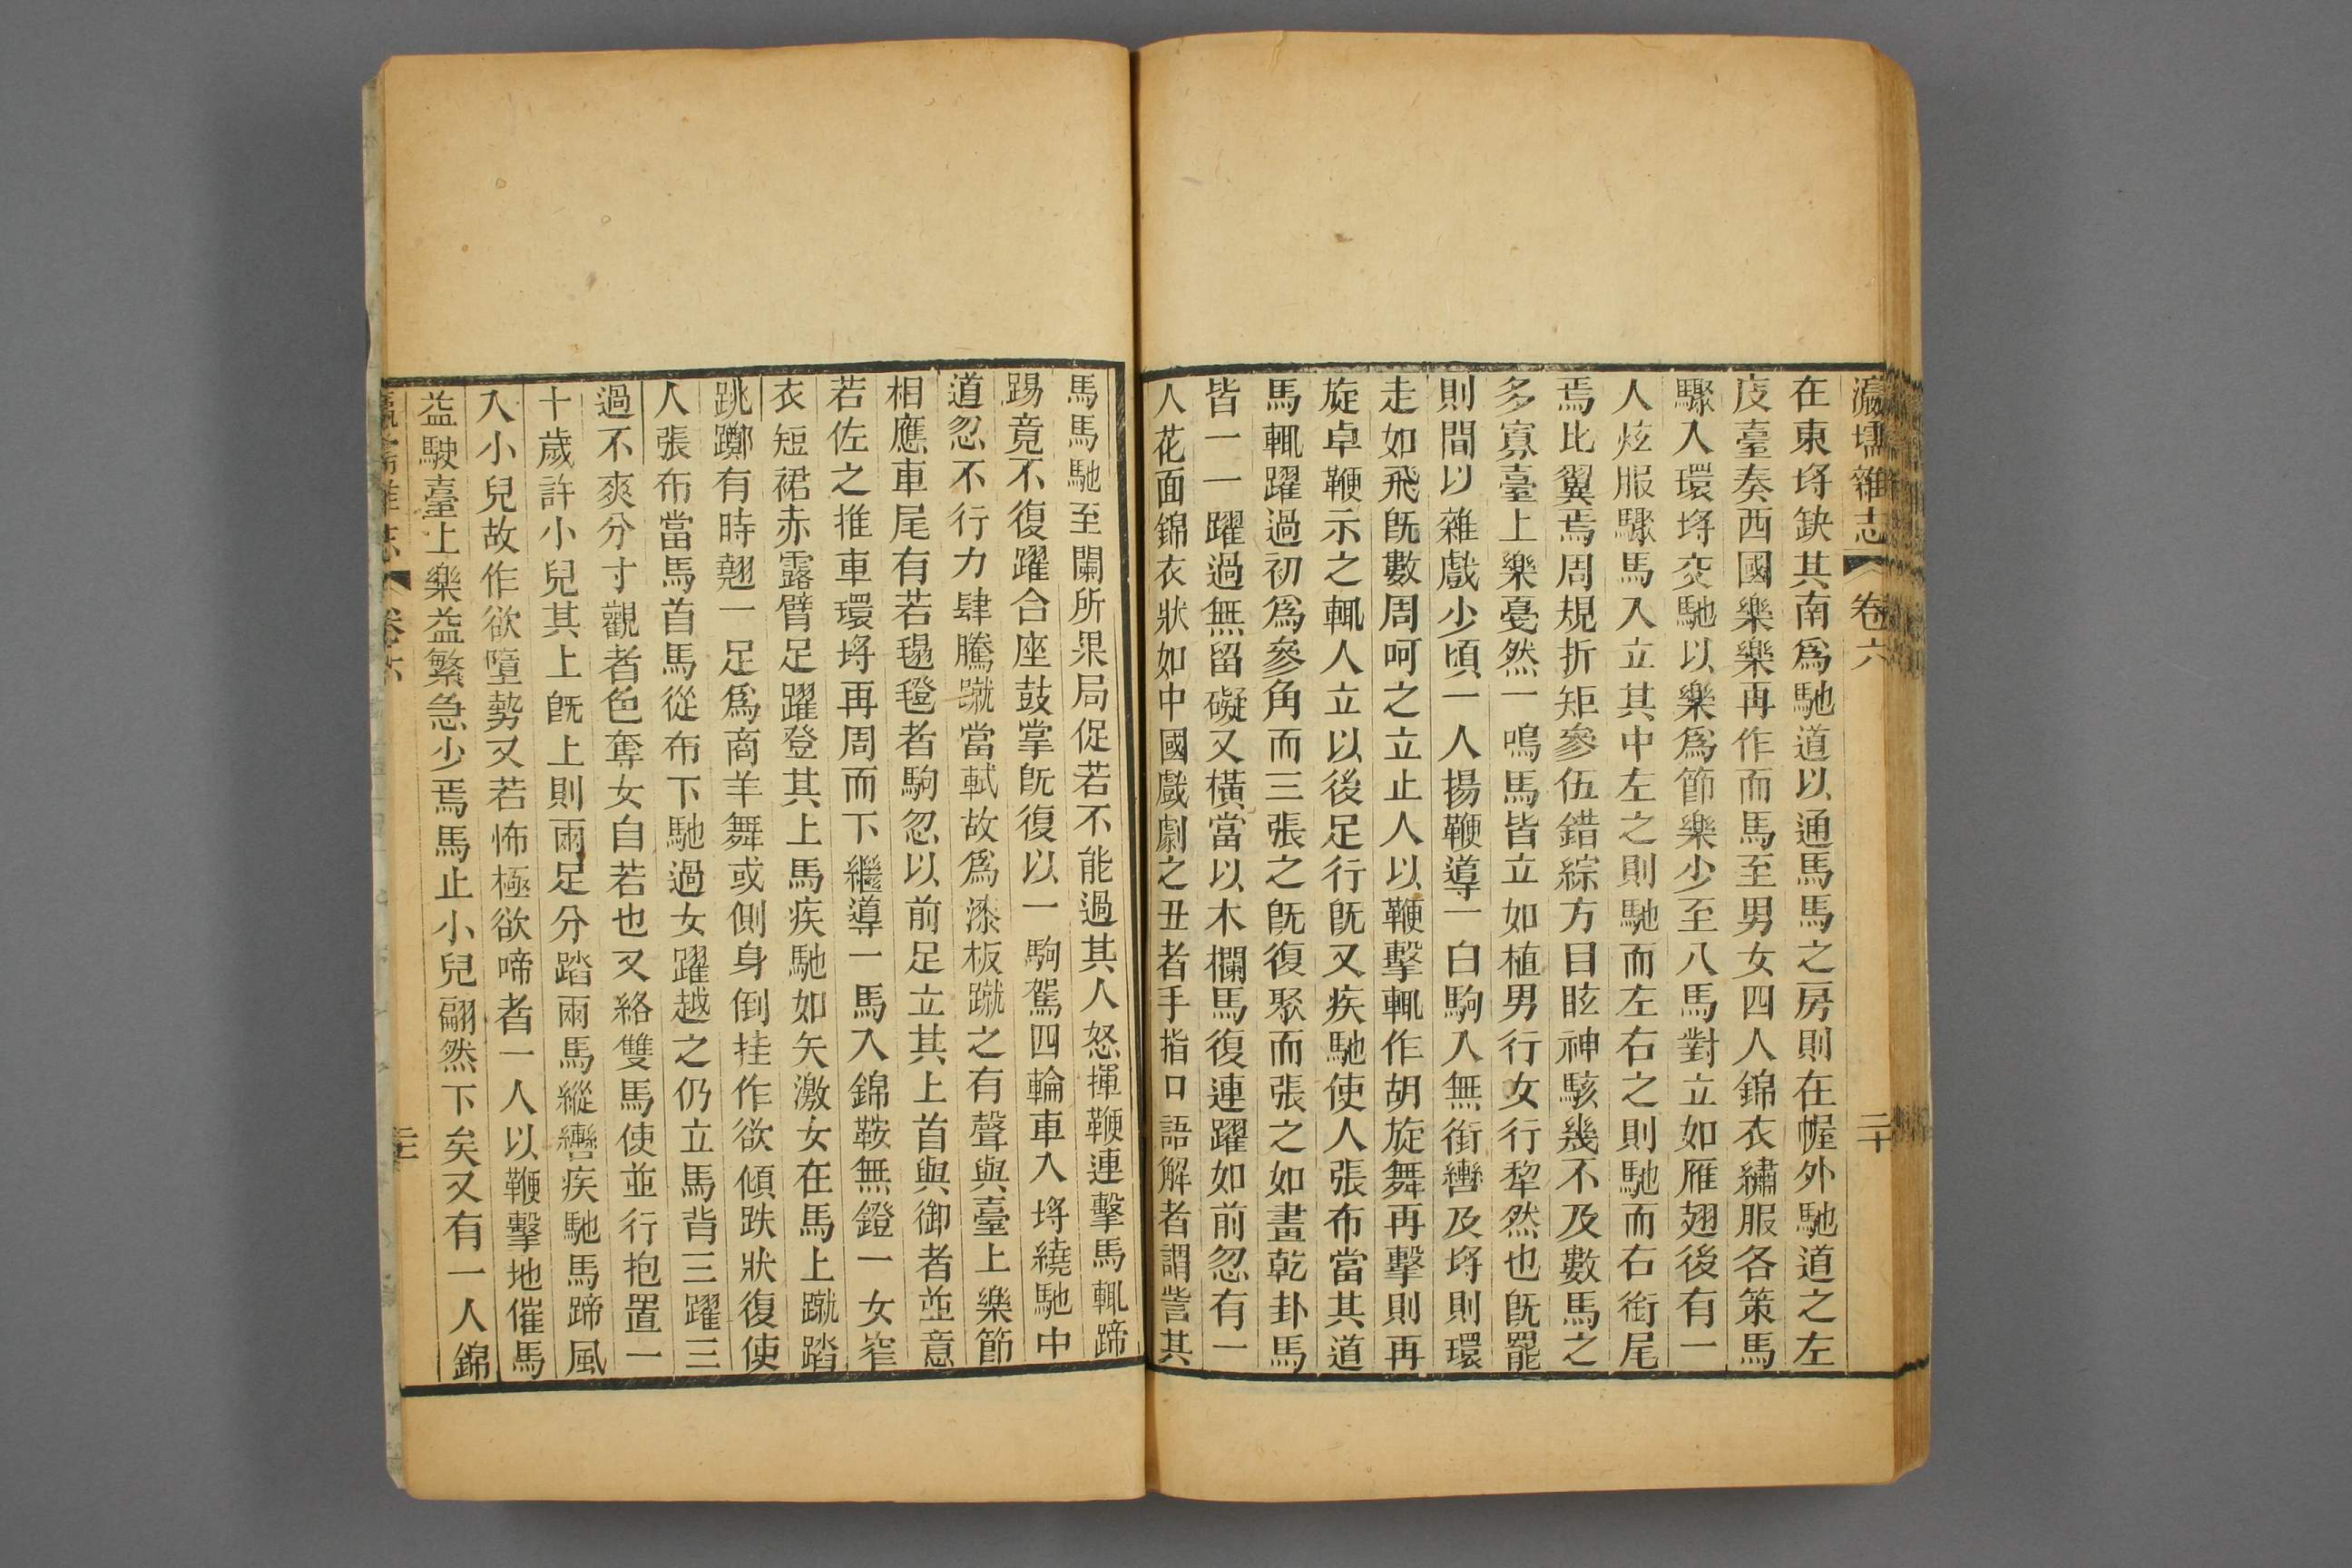 瀛壖雜志 卷六 二十
在東埒缺其南爲馳道以通馬馬之房則在幄外馳道之左
庋臺奏西國樂樂再作而馬至男女四人錦衣繡服各策馬
驟入環埒交馳以樂爲節樂少至八馬對立如雁翅後有一
人炫服驟馬入立其中左之則馳而左右之則馳而右銜尾
焉比翼焉周規折矩參伍錯綜方目眩神駭幾不及數馬之
多寡臺上樂戞然一鳴馬皆立如植男行女行犂然也旣罷
則間以雜戲少頃一人揚鞭導一白駒入無銜轡及埒則環
走如飛旣數周呵之立止人以鞭擊輒作胡旋舞再擊則再
旋卓鞭示之輒人立以後足行旣又疾馳使人張布當其道
馬輒躍過初爲參角而三張之旣復聚而張之如畫乾卦馬
皆一一躍過無留礙又橫當以木欄馬復連躍如前忽有一
人花面錦衣狀如中國戲劇之丑者手指口語解者謂訾其
馬馬馳至闌所果局促若不能過其人怒揮鞭連擊馬輒蹄
踢竟不復躍合座鼓掌旣復以一駒駕四輪車入埒繞馳中
道忽不行力肆騰蹴當軾故爲漆板蹴之有聲與臺上樂節
相應車尾有若毾㲪者駒忽以前足立其上首與御者並意
若佐之推車環埒再周而下繼導一馬入錦鞍無鐙一女窄
衣短裙赤露臂足躍登其上馬疾馳如矢激女在馬上蹴踏
跳躑有時翹一足爲商羊舞或側身倒挂作欲傾跌狀復使
人張布當馬首馬從布下馳過女躍越之仍立馬背三躍三
過不爽分寸觀者色奪女自若也又絡雙馬使並行抱置一
十歲許小兒其上旣上則兩足分踏兩馬縱轡疾馳馬蹄風
入小兒故作欲墮勢又若怖極欲啼者一人以鞭擊地催馬
益駛臺上樂益繁急少焉馬止小兒翩然下矣又有一人錦
瀛壖雜志 卷六 二十一